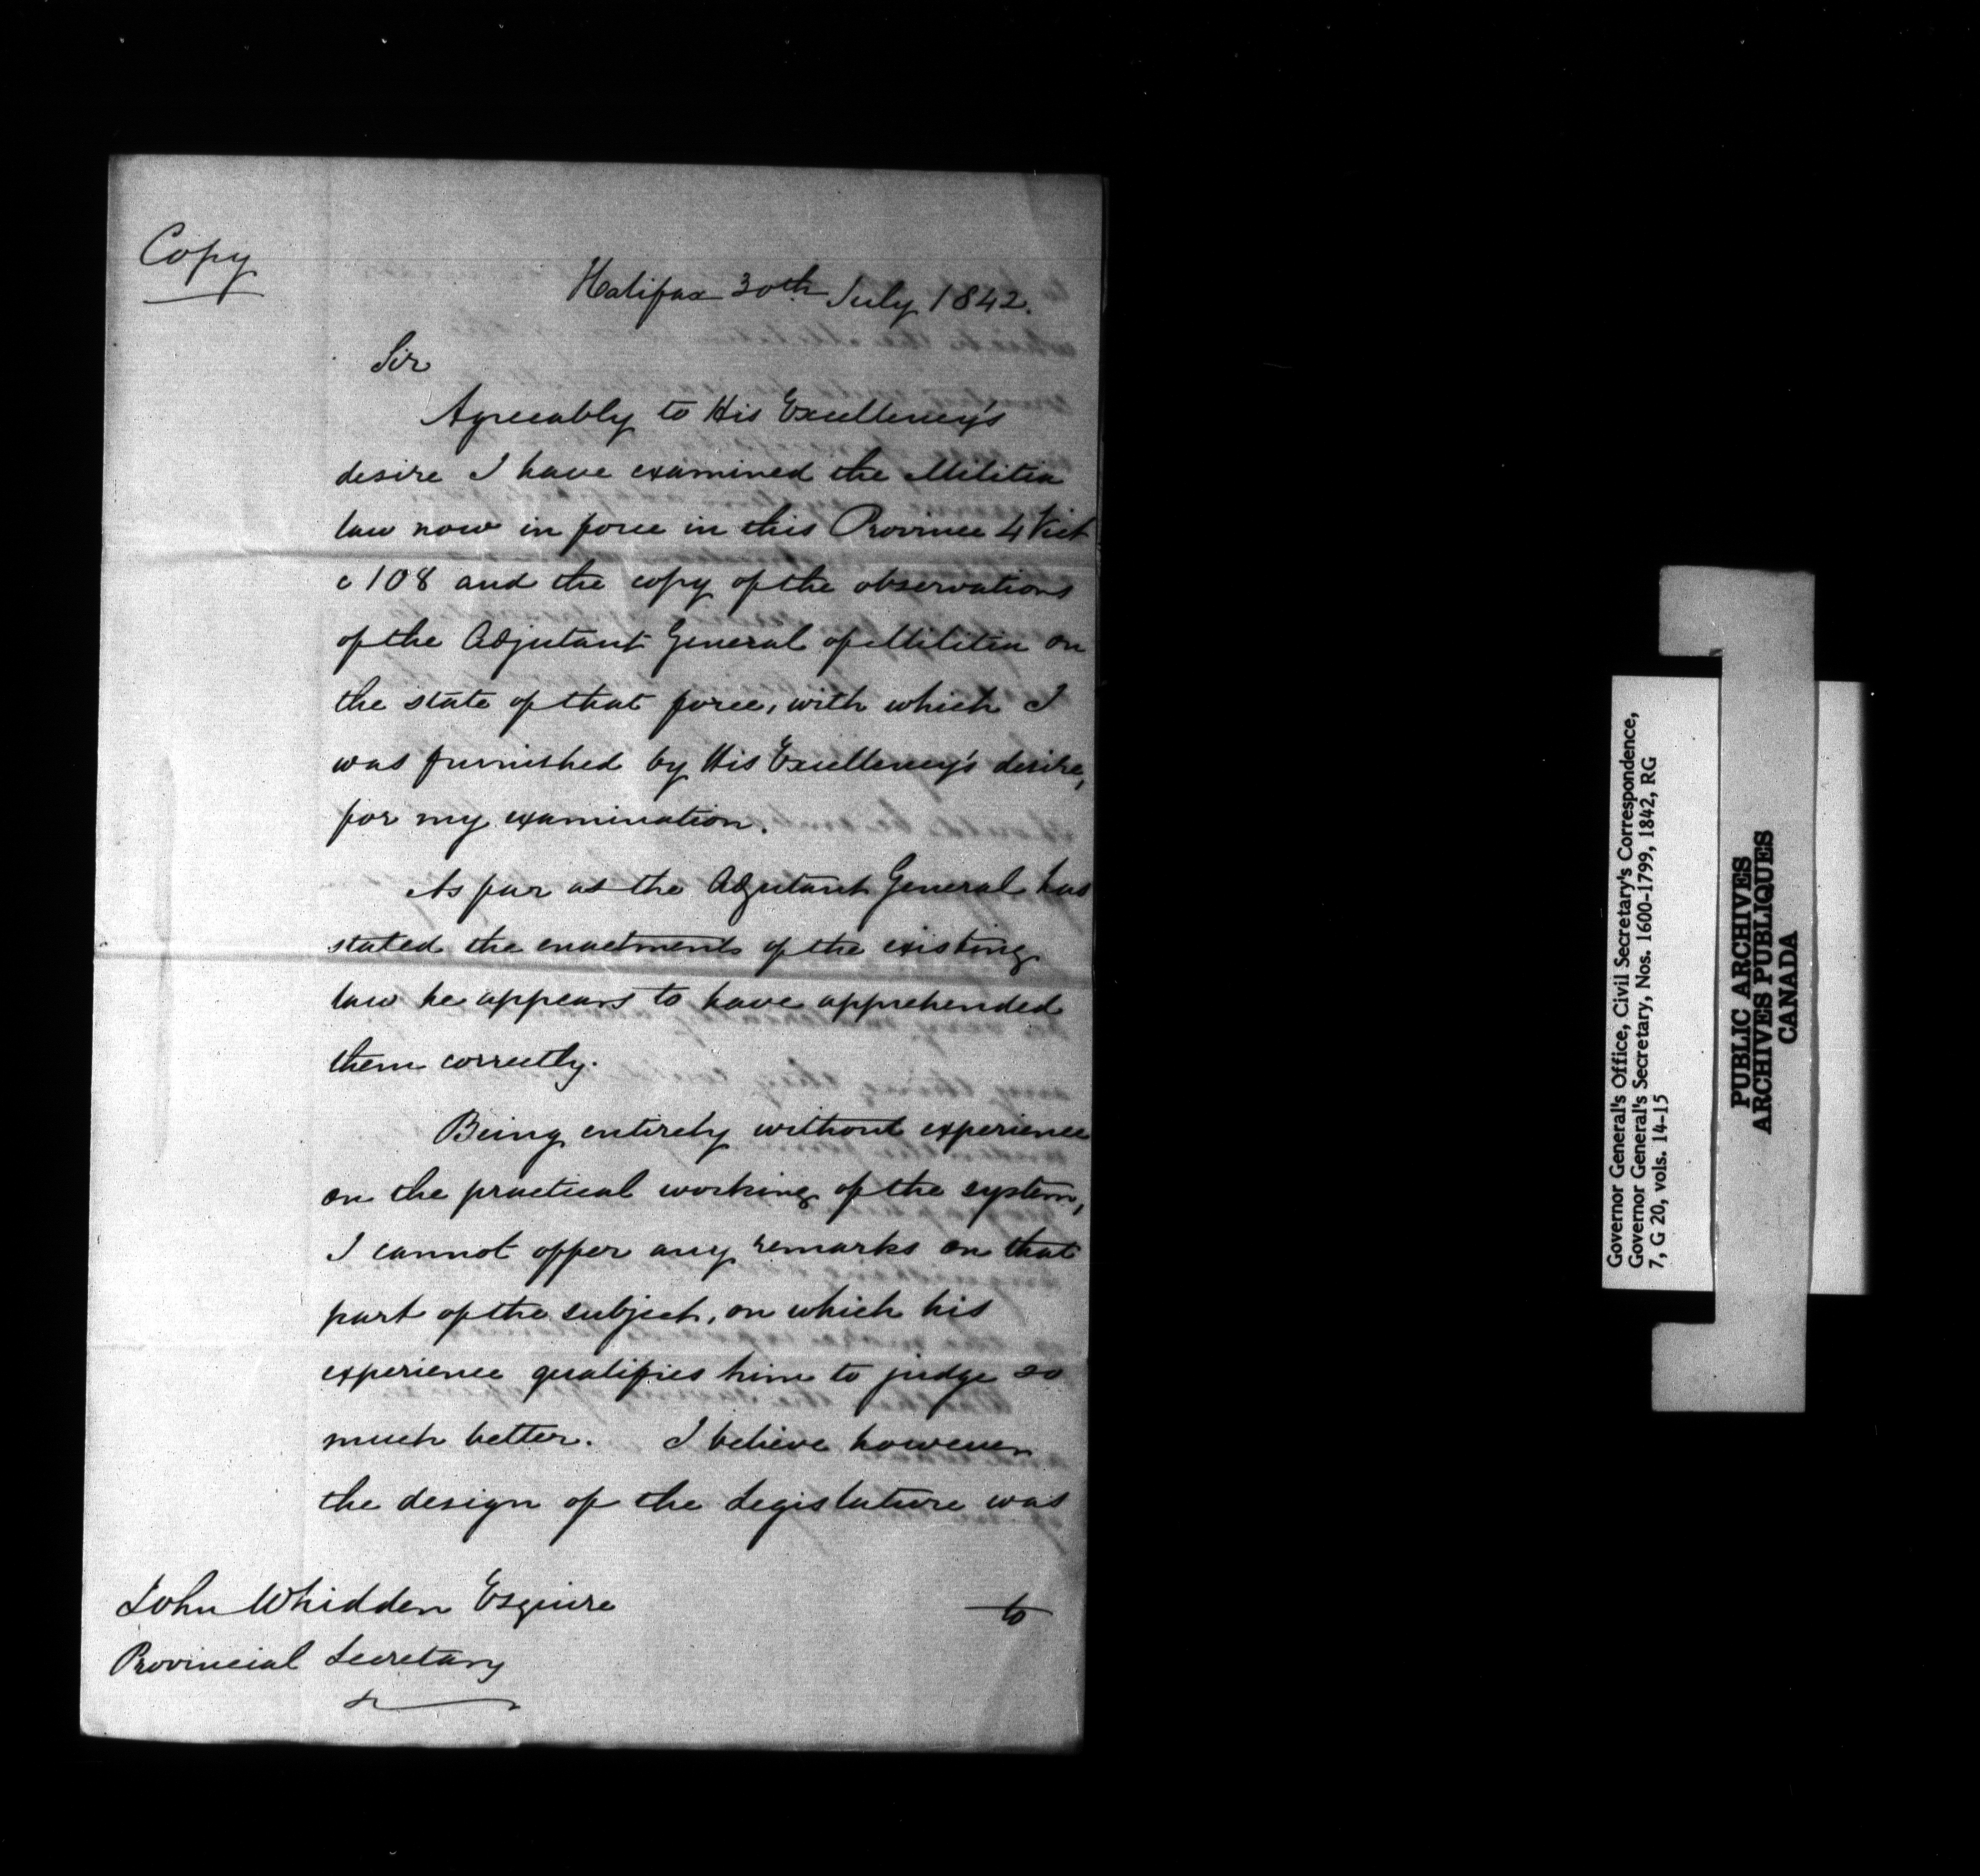 Copy
Halifax 30th July 1842.
Sir
Agreeably to His Excellency's
desire I have examined the Militia
law now in force in this Province 4 Vict
c 108 and the copy of the observations
of the Adjutant General of Militia on
the state of that force, with which I
was furnished by His Excellency's desire,
for my examination.
As far as the Adjutant General has
stated the enactments of the existing
law he appears to have apprehended
them correctly.
Being entirely without experience
on the practical working of the system,
I cannot offer any remarks on that
part of the subject, on which his
experience qualifies him to judge so
much better. I believe however
the design of the Legislature was
to
John Whidden Esquire
Provincial Secretary
Governor General's Office, Civil Secretary's Correspondence,
Governor General's Secretary, Nos. 1600-1799, 1842, RG
7, G 20, vols. 14-15
PUBLIC ARCHIVES
ARCHIVES PUBLIQUES
CANADA